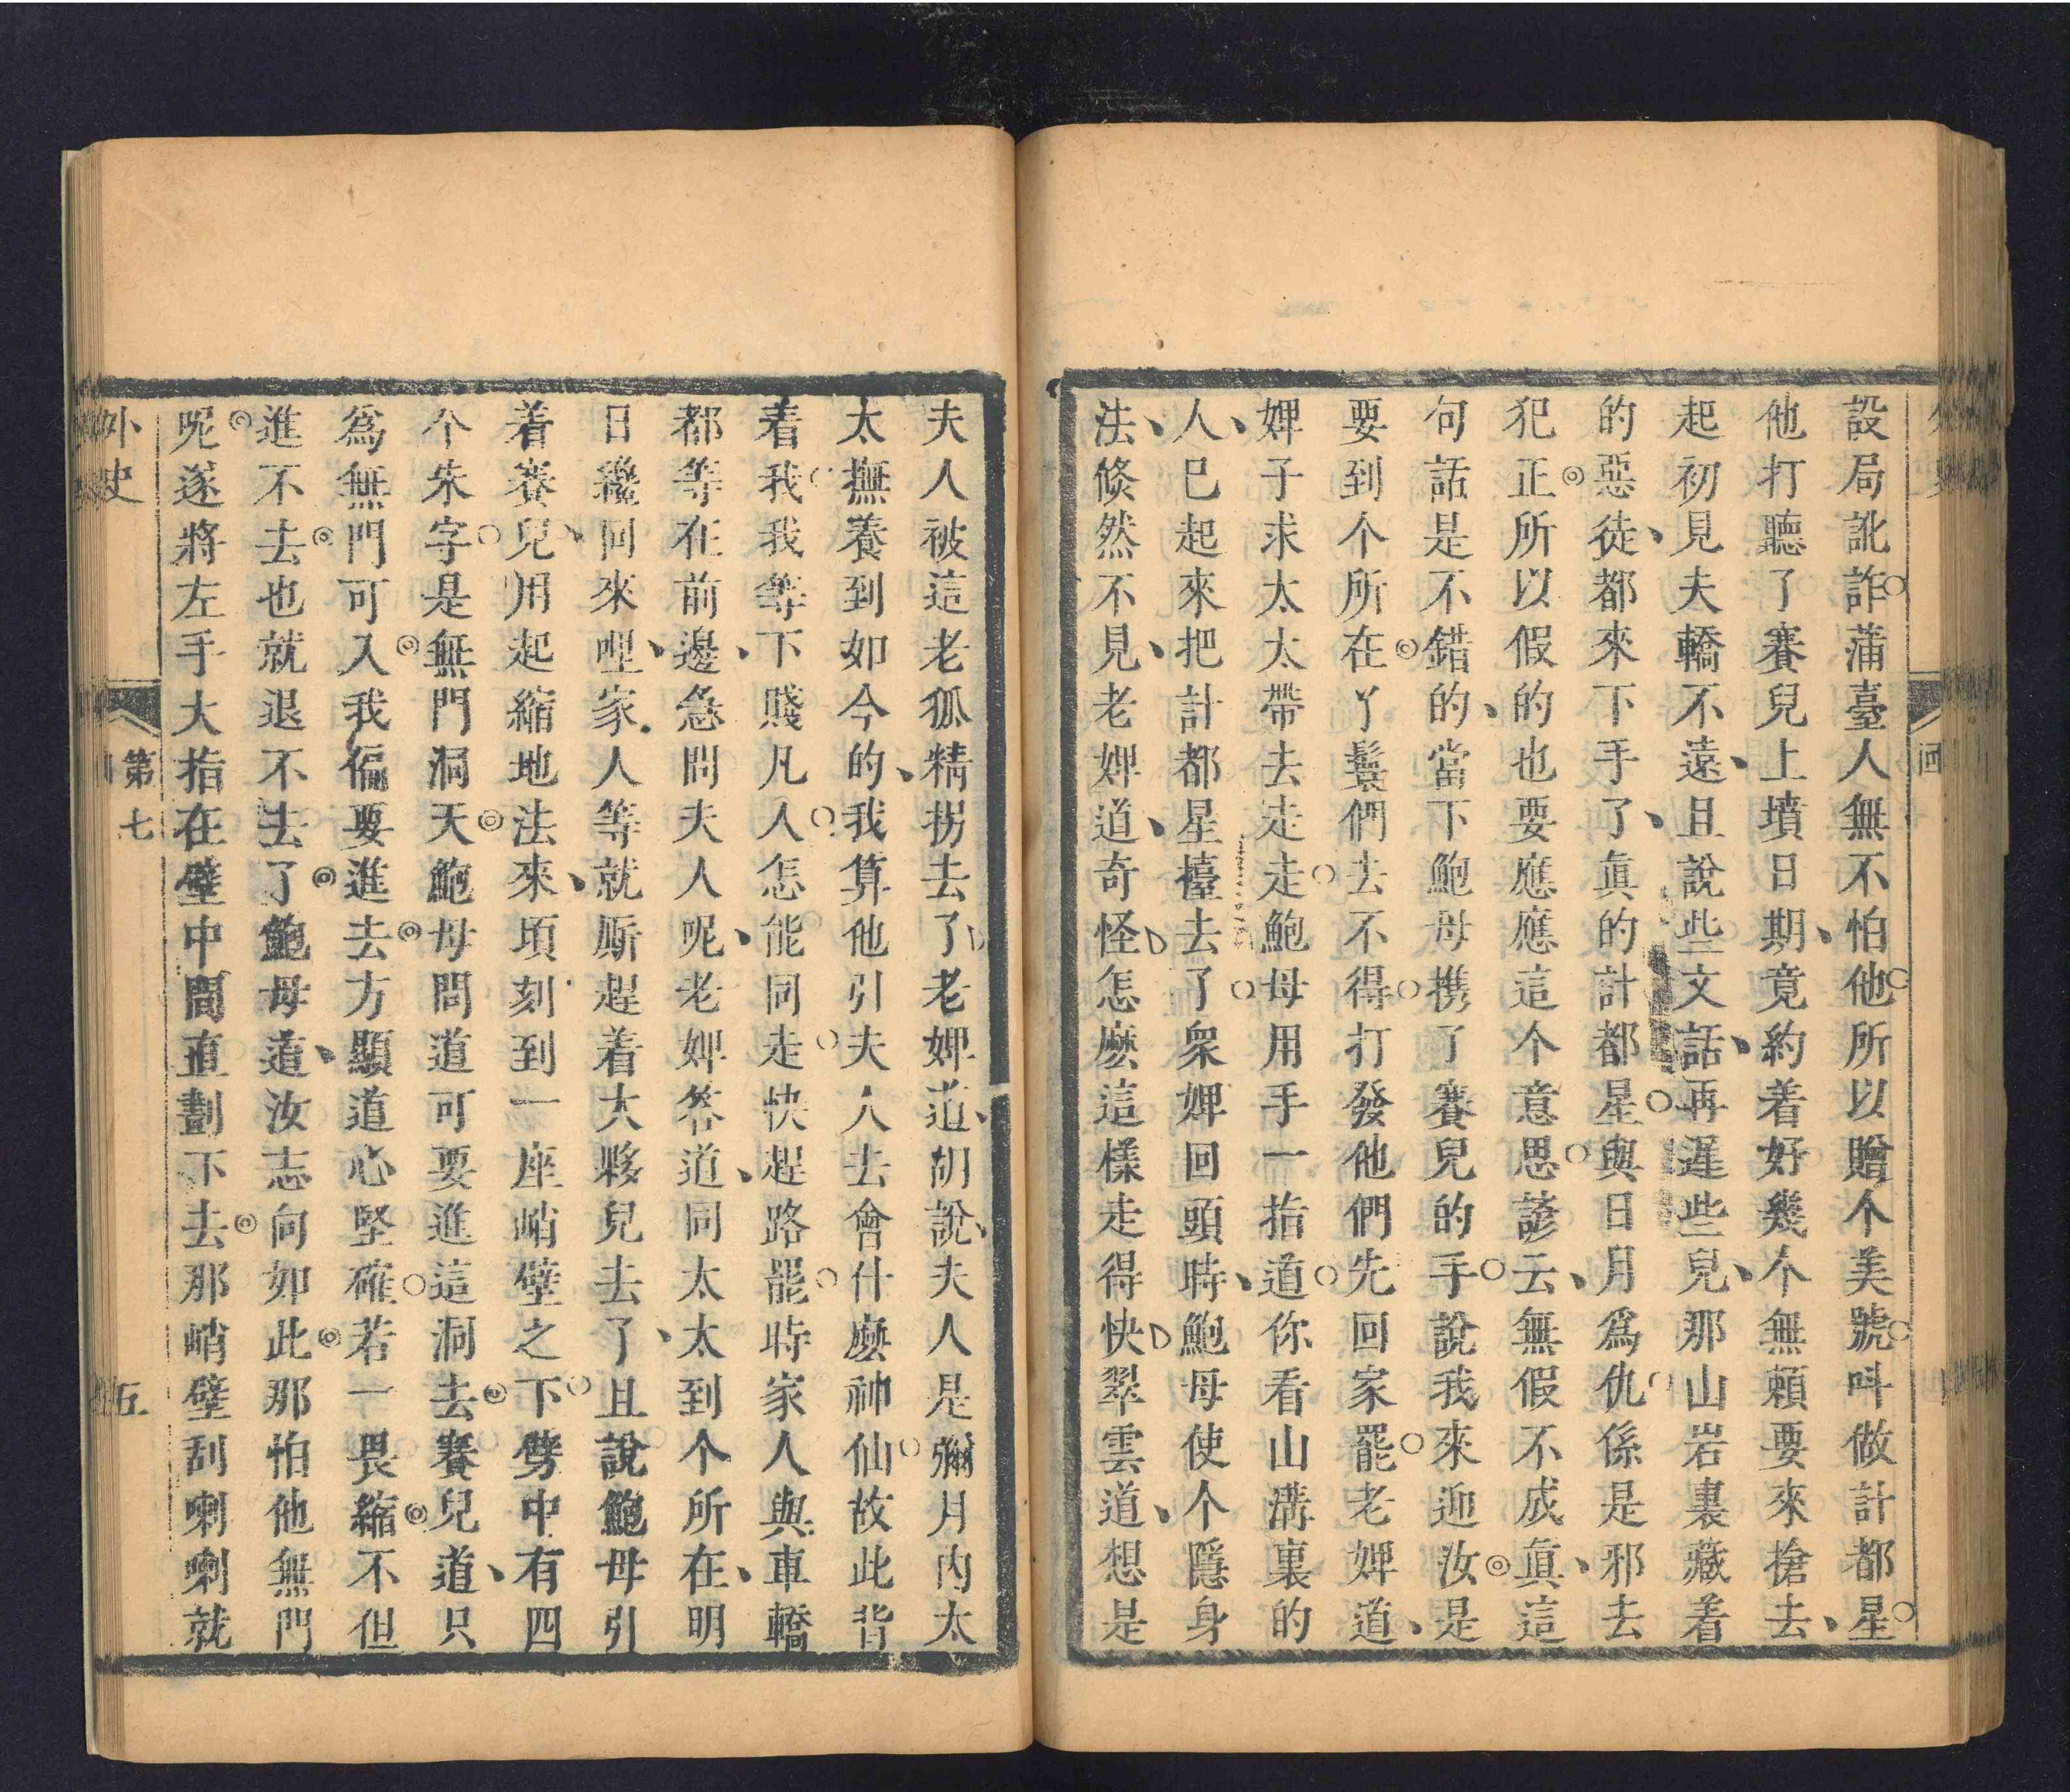 設局訛詐蒲臺人無不怕他所以贈个美號呌做計都星
他打聽了賽兒上墳日期竟約着好幾个無賴要來搶去
起初見夫轎不遠且說些文話再遲些兒那山岩裏藏着
的惡徒都來下手了眞的計都星與日月爲仇係是邪去
犯正所以假的也要應應這个意思諺云無假不成眞這
句話是不錯的當下鮑母携了賽兒的手說我來迎汝是
要到个所在丫鬟們去不得打發他們先回家罷老婢道
婢子求太太帶去走走鮑母用手一指道你看山溝裏的
人巳起來把計都星擡去了衆婢回頭時鮑母使个隱身
法倐然不見老婢道奇怪怎麽這樣走得快翠雲道想是
夫人被這老狐精拐去了老婢道胡說夫人是彌月內太
太撫養到如今的我算他引夫人去會什麽神仙故此背
着我我等下賤凡人怎能同走快趕路罷時家人與車轎
都等在前邊急問夫人呢老婢答道同太太到个所在明
日纔回來哩家人等就厮趕着大夥兒去了且說鮑母引
着賽兒用起縮地法來頃刻到一座峭壁之下劈中有四
个朱字是無門洞天鮑母問道可要進這洞去賽兒道只
爲無門可入我偏要進去方顯道心堅確若一畏縮不但
進不去也就退不去了鮑母道汝志向如此那怕他無門
呢遂將左手大指在壁中間直劃下去那峭壁刮喇喇就
外史
第七
五